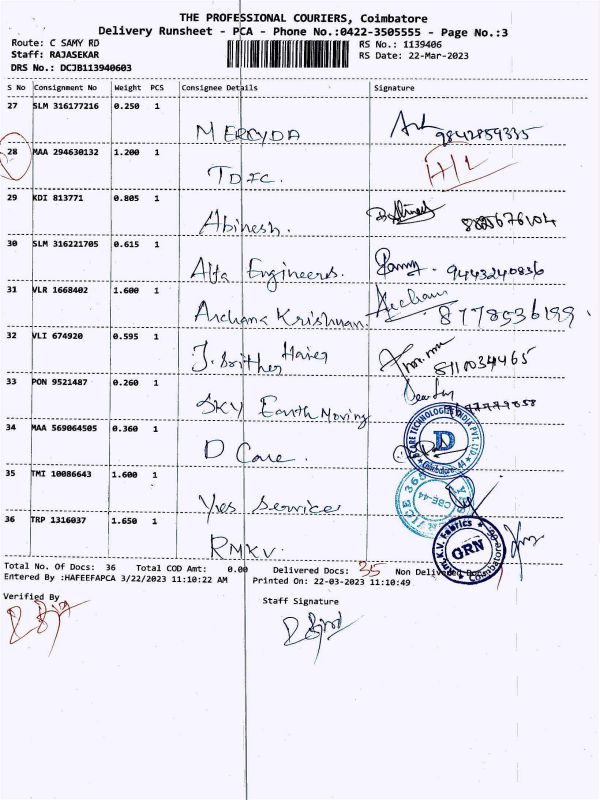 THE PROFESSIONAL COURIERS, Coimbatore
Delivery Runsheet - PCA - Phone No.:0422-3505555 - Page No.:3
Route: C SAMY RD
Staff: RAJASEKAR
DRS No.: DCJB113940603
RS No.: 1139406
RS Date: 22-Mar-2023
S No Consignment No Weight PCS Consignee Details Signature
27 SLM 316177216 0.250 1
MERCYDA 9842859335
28 MAA 294630132 1.200 1
TDFC. H/L
29 KDI 813771 0.805 1
Abinesh.
30 SLM 316221705 0.615 1
Alfa Engineers. 9443240836
31 VLR 1668402 1.600 1
Archana Krishnan. Archana 8778536199
32 VLI 674920 0.595 1
J. Brither Haires 8110034465
33 PON 9521487 0.260 1
SKY Earth Moving
34 MAA 569064505 0.360 1
D Care.
D CARE TECHNOLOGIES INDIA PVT. LTD.
D
Coimbatore-44
35 TMI 10086643 1.600 1
Yes Service
CBE-44
36 TRP 1316037 1.650 1
RMKV.
Rm.K.V. Fabrics
GRN
Coimbatore
Total No. Of Docs: 36 Total COD Amt: 0.00 Delivered Docs: 35 Non Delivered Docs:
Entered By :HAFEEFAPCA 3/22/2023 11:10:22 AM Printed On: 22-03-2023 11:10:49
Verified By
Staff Signature